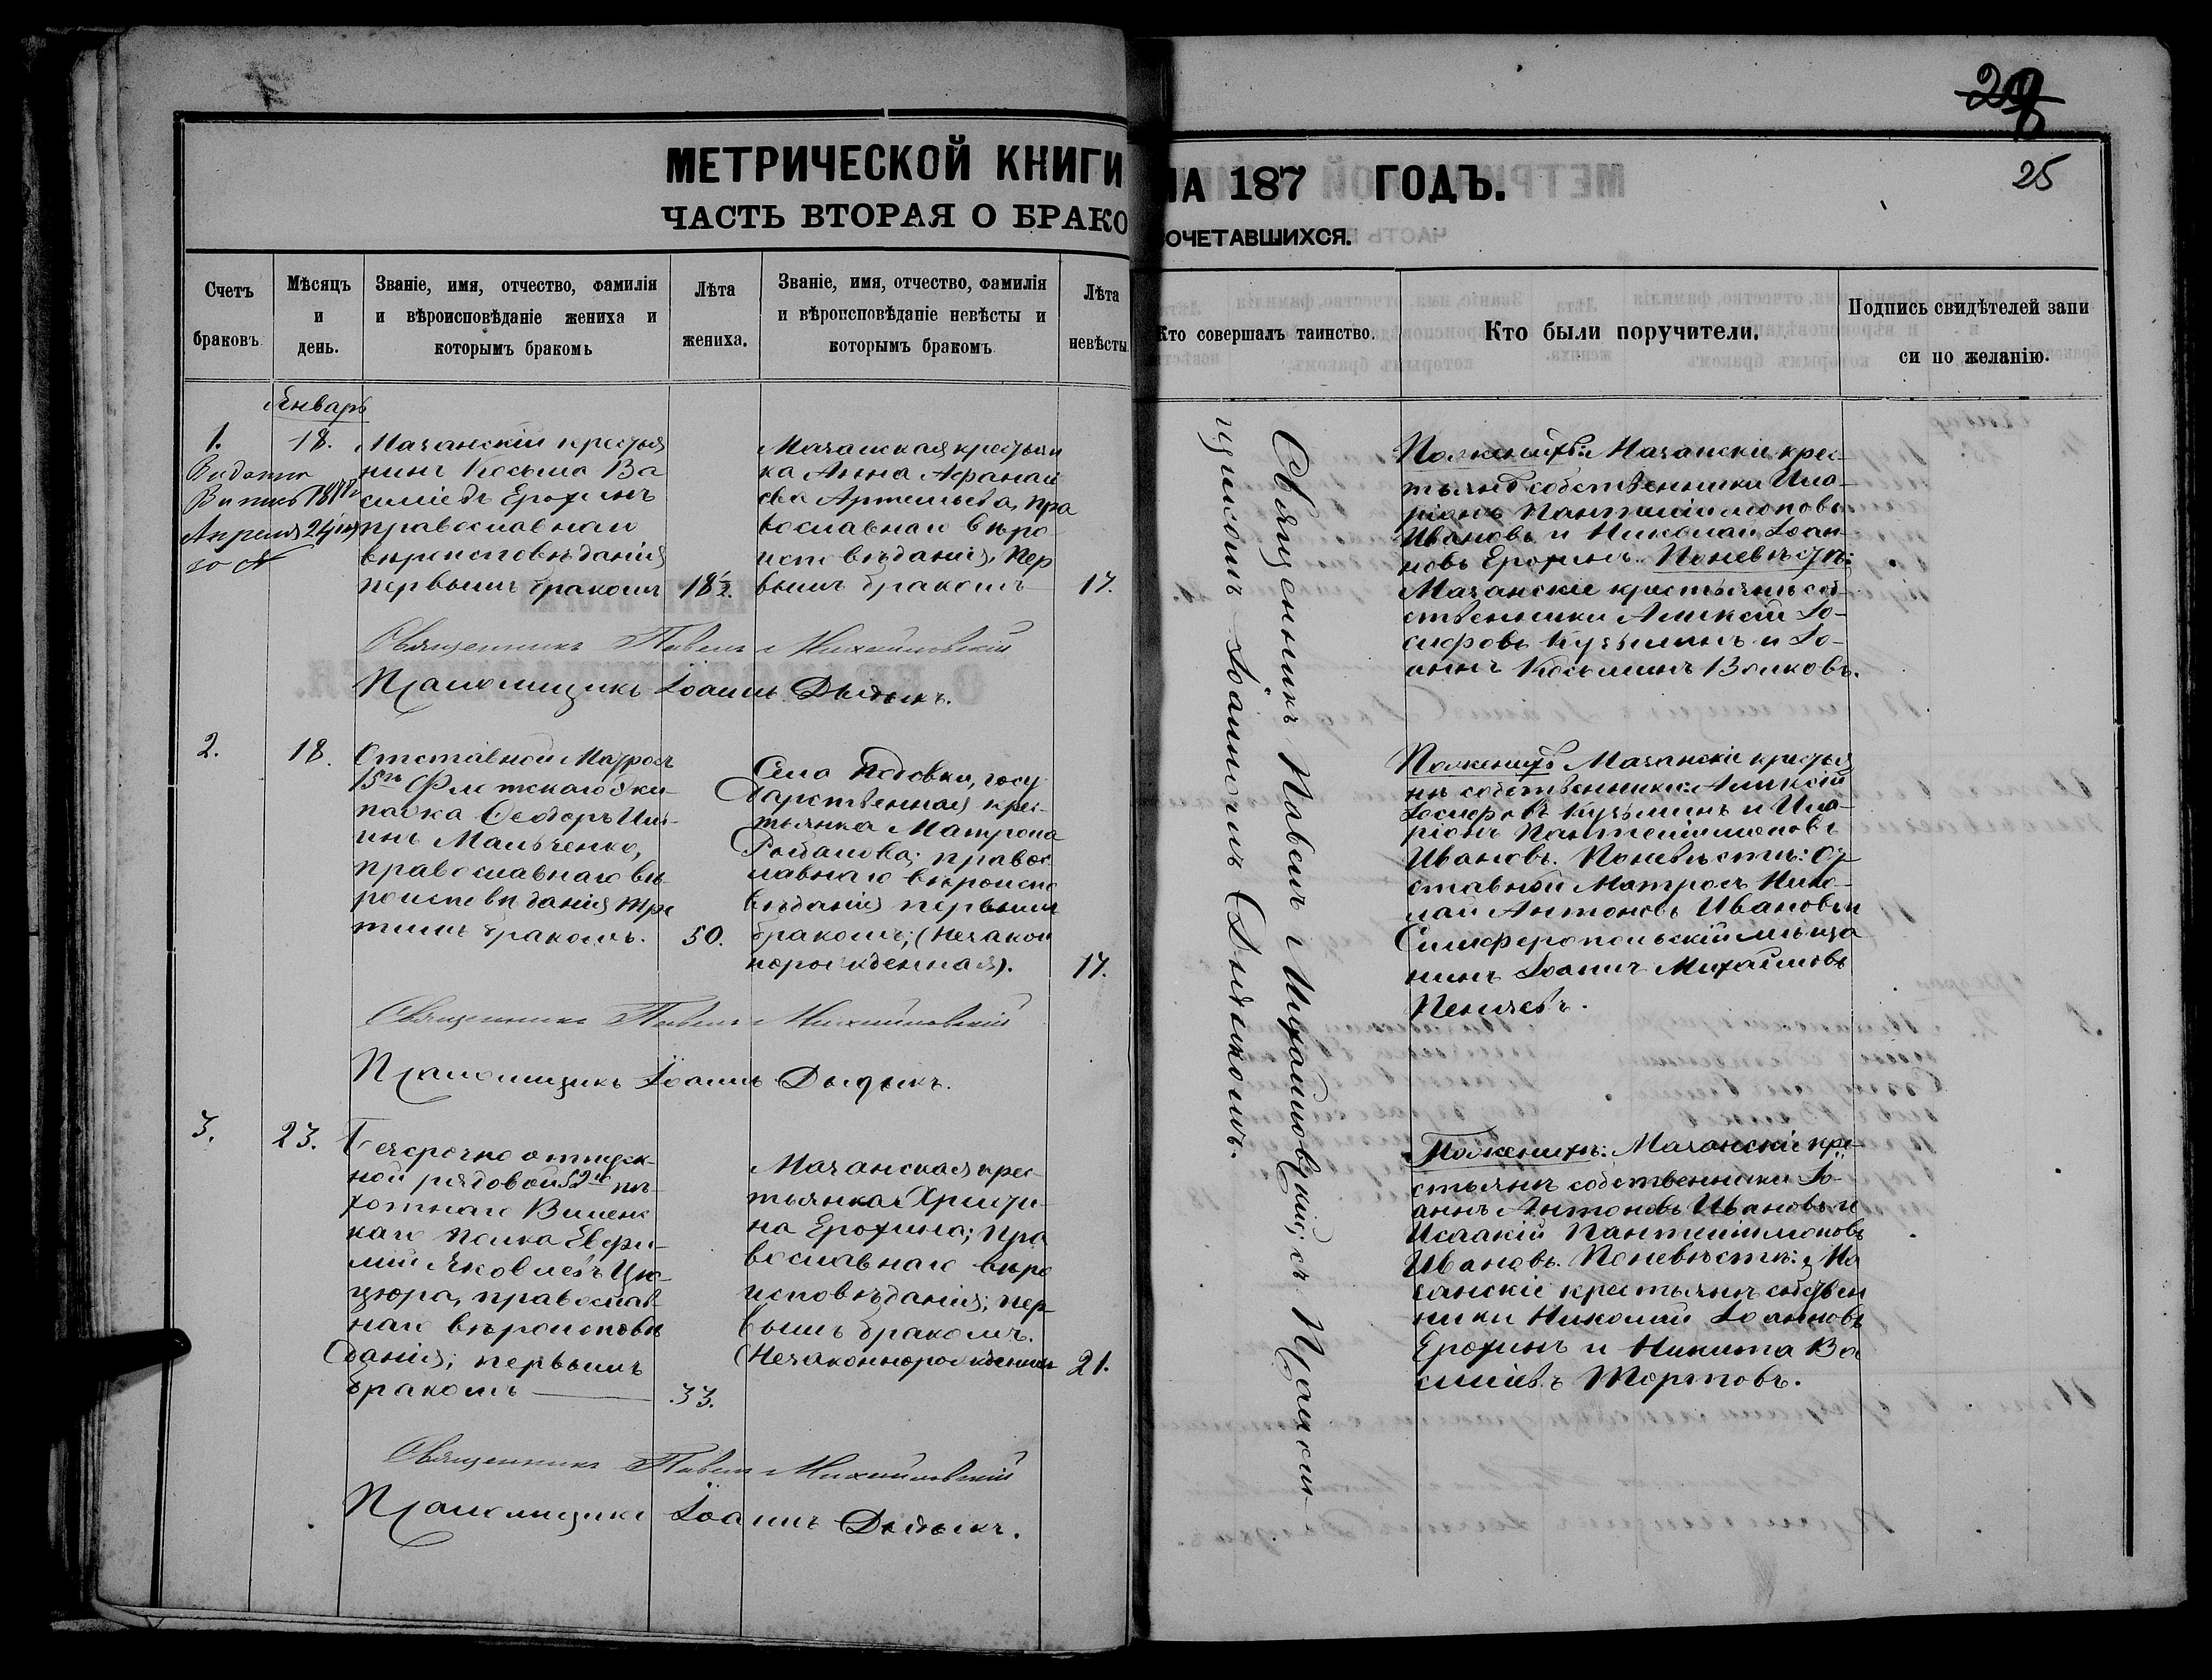 29
25
МЕТРИЧЕСКОЙ КНИГИ
НА 187 ГОДЪ.
ЧАСТЬ ВТОРАЯ О БРАКО
СОЧЕТАВШИХСЯ.
Счетъ браковъ.
Мѣсяцъ и день.
Званіе, имя, отчество, фамилія
и вѣроисповѣданіе жениха и
которымъ бракомъ
Лѣта
жениха.
Званіе, имя, отчество, фамилія
и вѣроисповѣданіе невѣсты и
которымъ бракомъ.
Лѣта
невѣсты
Кто совершалъ таинство.
Кто были поручители.
Подпись свидѣтелей запи
си по желанію.
Январь
1.
18.
Мачанскій крестья
нинъ Косьма Ва
силіевъ Ерохинъ
православнаго
вѣроисповѣданія
первымъ бракомъ
18½.
Мачанская крестьян
ка Анна Афанаси
ева Артемьева, пра
вославнаго вѣро
исповѣданія, пер
вымъ бракомъ
17.
Поженихѣ: Мачанскіе крес-
тьянѣ собственники Ила-
ріонъ Пантелиимоновъ
Ивановъ и Николай Іоан-
новъ Ерохинъ. Поневѣстѣ:
Мачанскіе крестьянѣ соб
ственники Алексѣй Іо-
сифовъ Кузьминъ и Іо-
аннъ Косьминъ Волковъ.
Священникъ Павелъ Михайловскій
Псаломщикъ Іоаннъ Дыдыкъ.
2.
18.
Отставной Матросъ
15го Флотскаго Эки
пажа Ѳеодоръ Иль
инъ Мальченко,
православнаго вѣ
роисповѣданія тре
тимъ бракомъ.
50.
Села Подовки, госу
дарственная крес-
тьянка Матрона
Романова; правос
лавнаго вѣроиспо
вѣданія первымъ
бракомъ; (Незакон
норожденная).
17.
Поженихѣ Мачанскіе крестья
нѣ собственники: Алексѣй
Іосифовъ Кузьминъ и Ила-
ріонъ Пантелиимоновъ
Ивановъ. Поневѣстѣ: От
ставной Матросъ Нико-
лай Антоновъ Ивановъ и
Симферопольскій мѣща
нинъ Іоаннъ Михайловъ
Священникъ Павелъ Михайловскій
Псаломщикъ Іоаннъ Дыдыкъ.
3.
23.
Безсрочно отпуск-
ной рядовой 52го пѣ-
хотнаго Виленс
каго полка Евфи-
мій Яковлевъ Цю-
цюра, православ-
наго вѣроисповѣ
данія; первымъ
бракомъ
33.
Мачанская крес-
тьянка Христи-
на Ерохина; пра
вославнаго вѣро
исповѣданія; пер-
вымъ бракомъ.
(Незаконнорожденная
21.
Поженихѣ: Мачанскіе кре-
стьянѣ собственники Іо-
аннъ Антоновъ Ивановъ и
Исаакій Пантелиимоновъ
Ивановъ. Поневѣстѣ: Ма
чанскіе крестьянѣ собствен
ники Николай Іоанновъ
Ерохинъ и Никита Ва
силіевъ Шортовъ.
Священникъ Павелъ Михайловскій
Псаломщикъ Іоаннъ Дыдыкъ.
Священникъ Павелъ Михайловскій; съ Псалом-
щикомъ Іоанномъ Дыдыкомъ.